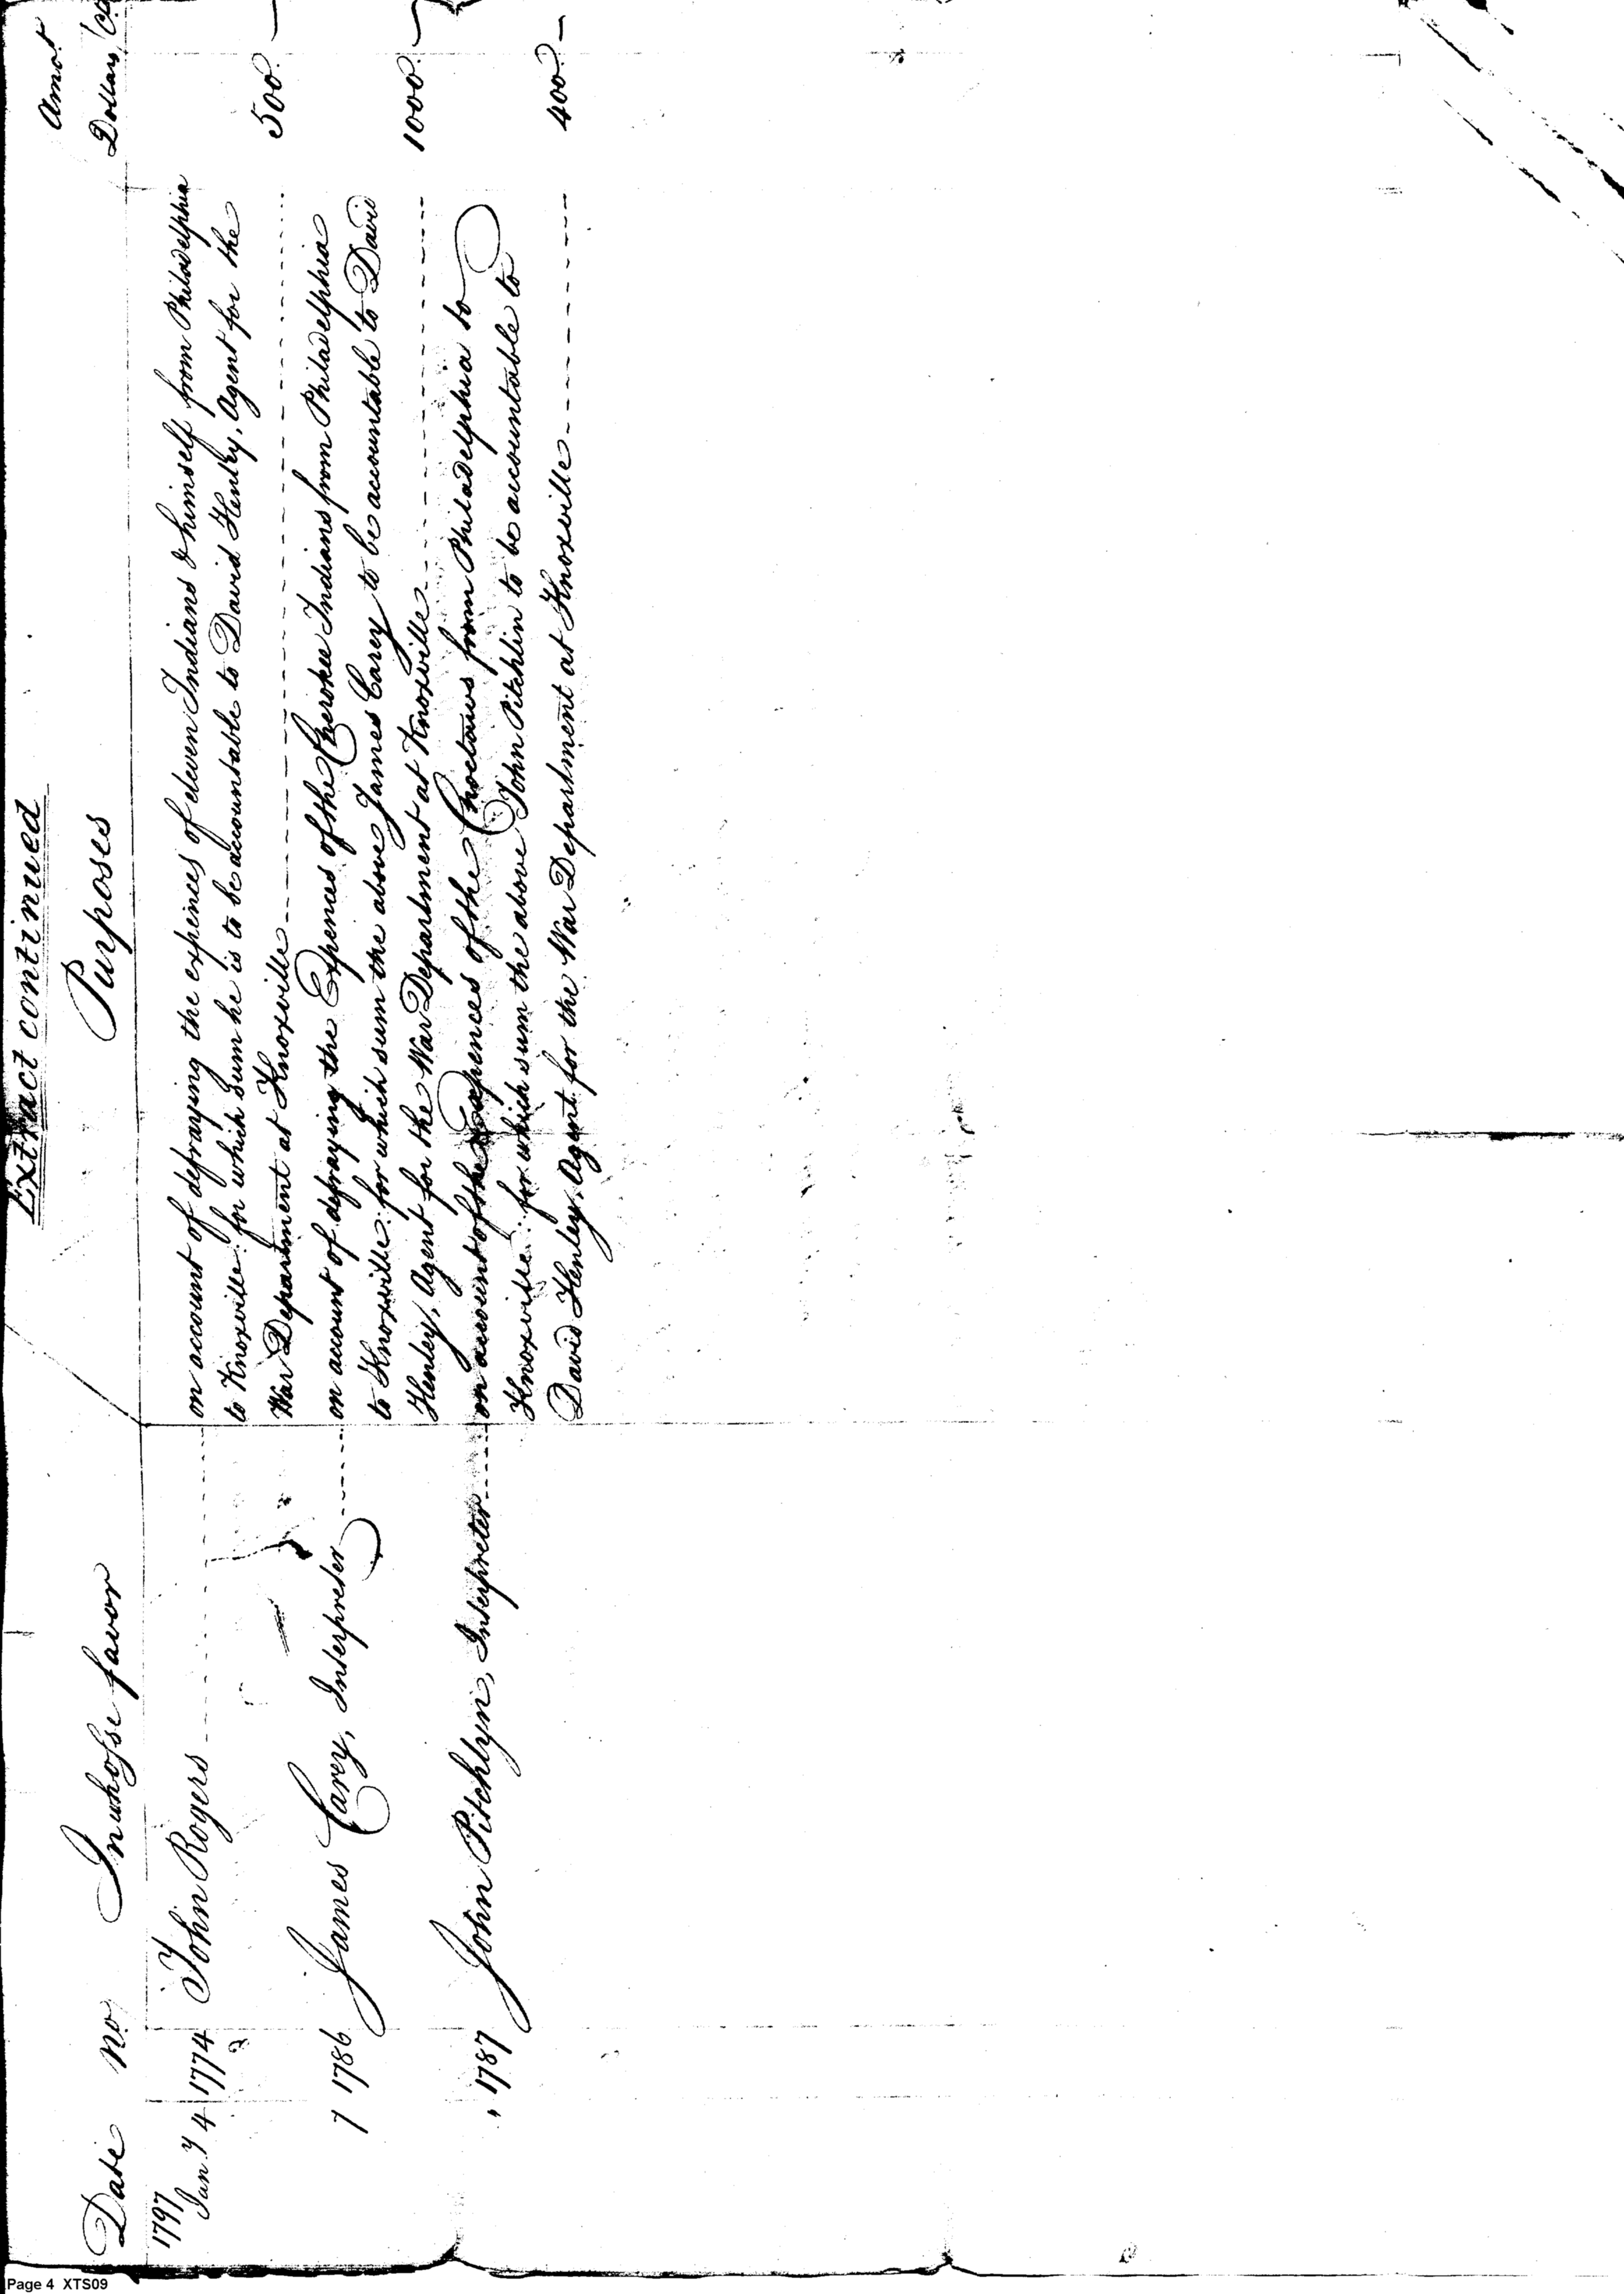 Extract continued
Date No. In whose favor Purposes Amot
Dollars
1797
Jany 4 1774 John Rogers on account of defraying the expences of eleven Indians & himself from Philadelphia
to Knoxville for which sum he is to be accountable to David Henley, Agent for the
War Department at Knoxville 500.
7 1786 James Carey, Interpreter on account of defraying the Expences of the Cherokee Indians from Philadelphia
to Knoxville for which sum the above James Carey to be accountable to David
Henley, Agent for the War Department at Knoxville 1000.
" 1787 John Pitchlyn, Interpreter on account of the Expences of the Choctaws from Philadelphia to
Knoxville for which sum the above John Pitchlin to be accountable to
David Henley, Agent for the War Department at Knoxville 400.
Page 4 XTS09